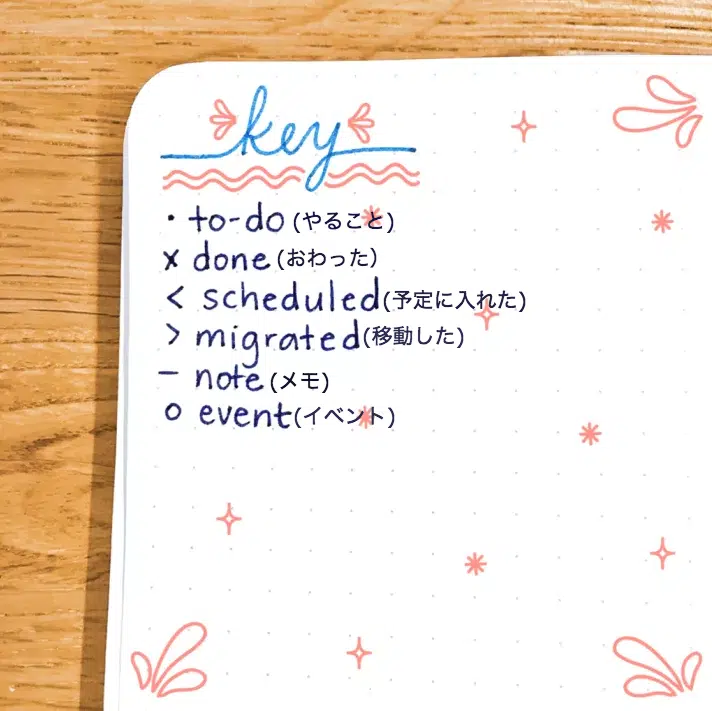 key
• to-do (やること)
x done (おわった)
< scheduled(予定に入れた)
> migrated(移動した)
− note (メモ)
o event(イベント)